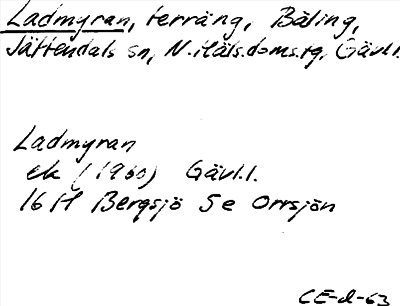 Ladmyran, terräng, Bäling,
Jättendals sn, N. Häls. doms.rg, Gävl.l.
Ladmyran
ek (1960) Gävl.l.
16H Bergsjö 5e Orrsjön
CE-d-63